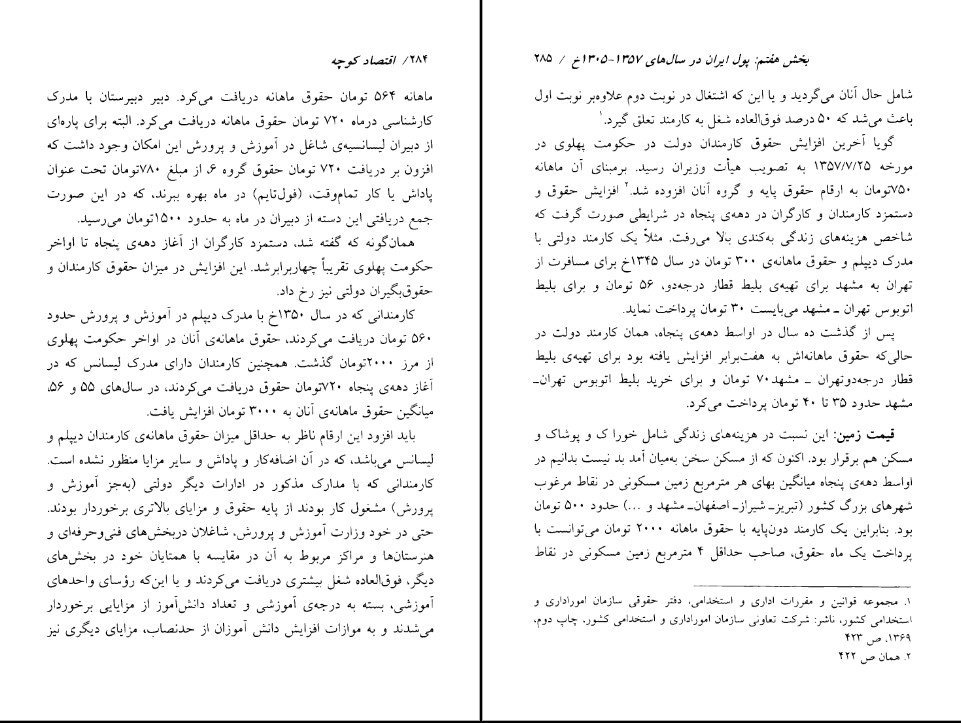 ۲۸۴/ اقتصاد کوچه
ماهانه ۵۶۴ تومان حقوق ماهانه دریافت می‌کرد. دبیر دبیرستان با مدرک
کارشناسی درماه ۷۲۰ تومان حقوق ماهانه دریافت می‌کرد. البته برای پاره‌ای
از دبیران لیسانسیه‌ی شاغل در آموزش و پرورش این امکان وجود داشت که
افزون بر دریافت ۷۲۰ تومان حقوق گروه ۶، از مبلغ ۷۸۰تومان تحت عنوان
پاداش یا کار تمام‌وقت، (فول‌تایم) در ماه بهره ببرند، که در این صورت
جمع دریافتی این دسته از دبیران در ماه به حدود ۱۵۰۰تومان می‌رسید.
همان‌گونه که گفته شد، دستمزد کارگران از آغاز دهه‌ی پنجاه تا اواخر
حکومت پهلوی تقریباً چهاربرابرشد. این افزایش در میزان حقوق کارمندان و
حقوق‌بگیران دولتی نیز رخ داد.
کارمندانی که در سال ۱۳۵۰خ با مدرک دیپلم در آموزش و پرورش حدود
۵۶۰ تومان دریافت می‌کردند، حقوق ماهانه‌ی آنان در اواخر حکومت پهلوی
از مرز ۲۰۰۰تومان گذشت. همچنین کارمندان دارای مدرک لیسانس که در
آغاز دهه‌ی پنجاه ۷۲۰تومان حقوق دریافت می‌کردند، در سال‌های ۵۵ و ۵۶،
میانگین حقوق ماهانه‌ی آنان به ۳۰۰۰ تومان افزایش یافت.
باید افزود این ارقام ناظر به حداقل میزان حقوق ماهانه‌ی کارمندان دیپلم و
لیسانس می‌باشد، که در آن اضافه‌کار و پاداش و سایر مزایا منظور نشده است.
کارمندانی که با مدارک مذکور در ادارات دیگر دولتی (به‌جز آموزش و
پرورش) مشغول کار بودند از پایه حقوق و مزایای بالاتری برخوردار بودند.
حتی در خود وزارت آموزش و پرورش، شاغلان دربخش‌های فنی‌وحرفه‌ای و
هنرستان‌ها و مراکز مربوط به آن در مقایسه با همتایان خود در بخش‌های
دیگر، فوق‌العاده شغل بیشتری دریافت می‌کردند و یا این‌که رؤسای واحدهای
آموزشی، بسته به درجه‌ی آموزشی و تعداد دانش‌آموز از مزایایی برخوردار
می‌شدند و به موازات افزایش دانش آموزان از حدنصاب، مزایای دیگری نیز
بخش هفتم: پول ایران در سال‌های ۱۳۵۷-۱۳۰۵خ / ۲۸۵
شامل حال آنان می‌گردید و یا این که اشتغال در نوبت دوم علاوه‌بر نوبت اول
باعث می‌شد که ۵۰ درصد فوق‌العاده شغل به کارمند تعلق گیرد.۱
گویا آخرین افزایش حقوق کارمندان دولت در حکومت پهلوی در
مورخه ۱۳۵۷/۷/۲۵ به تصویب هیأت وزیران رسید. برمبنای آن ماهانه
۷۵۰تومان به ارقام حقوق پایه و گروه آنان افزوده شد.۲ افزایش حقوق و
دستمزد کارمندان و کارگران در دهه‌ی پنجاه در شرایطی صورت گرفت که
شاخص هزینه‌های زندگی به‌کندی بالا می‌رفت. مثلاً یک کارمند دولتی با
مدرک دیپلم و حقوق ماهانه‌ی ۳۰۰ تومان در سال ۱۳۴۵خ برای مسافرت از
تهران به مشهد برای تهیه‌ی بلیط قطار درجه‌دو، ۵۶ تومان و برای بلیط
اتوبوس تهران ـ مشهد می‌بایست ۳۰ تومان پرداخت نماید.
پس از گذشت ده سال در اواسط دهه‌ی پنجاه، همان کارمند دولت در
حالی‌که حقوق ماهانه‌اش به هفت‌برابر افزایش یافته بود برای تهیه‌ی بلیط
قطار درجه‌دوتهران ـ مشهد۷۰ تومان و برای خرید بلیط اتوبوس تهران‌ـ
مشهد حدود ۳۵ تا ۴۰ تومان پرداخت می‌کرد.
قیمت زمین: این نسبت در هزینه‌های زندگی شامل خورا ک و پوشاک و
مسکن هم برقرار بود. اکنون که از مسکن سخن به‌میان آمد بد نیست بدانیم در
اواسط دهه‌ی پنجاه میانگین بهای هر مترمربع زمین مسکونی در نقاط مرغوب
شهرهای بزرگ کشور (تبریزـ شیرازـ اصفهان‌ـ مشهد و ...) حدود ۵۰۰ تومان
بود. بنابراین یک کارمند دون‌پایه با حقوق ماهانه ۲۰۰۰ تومان می‌توانست با
پرداخت یک ماه حقوق، صاحب حداقل ۴ مترمربع زمین مسکونی در نقاط
۱. مجموعه قوانین و مقررات اداری و استخدامی، دفتر حقوقی سازمان اموراداری و
استخدامی کشور، ناشر: شرکت تعاونی سازمان اموراداری و استخدامی کشور، چاپ دوم،
۱۳۶۹، ص ۴۲۳
۲. همان ص ۴۲۲